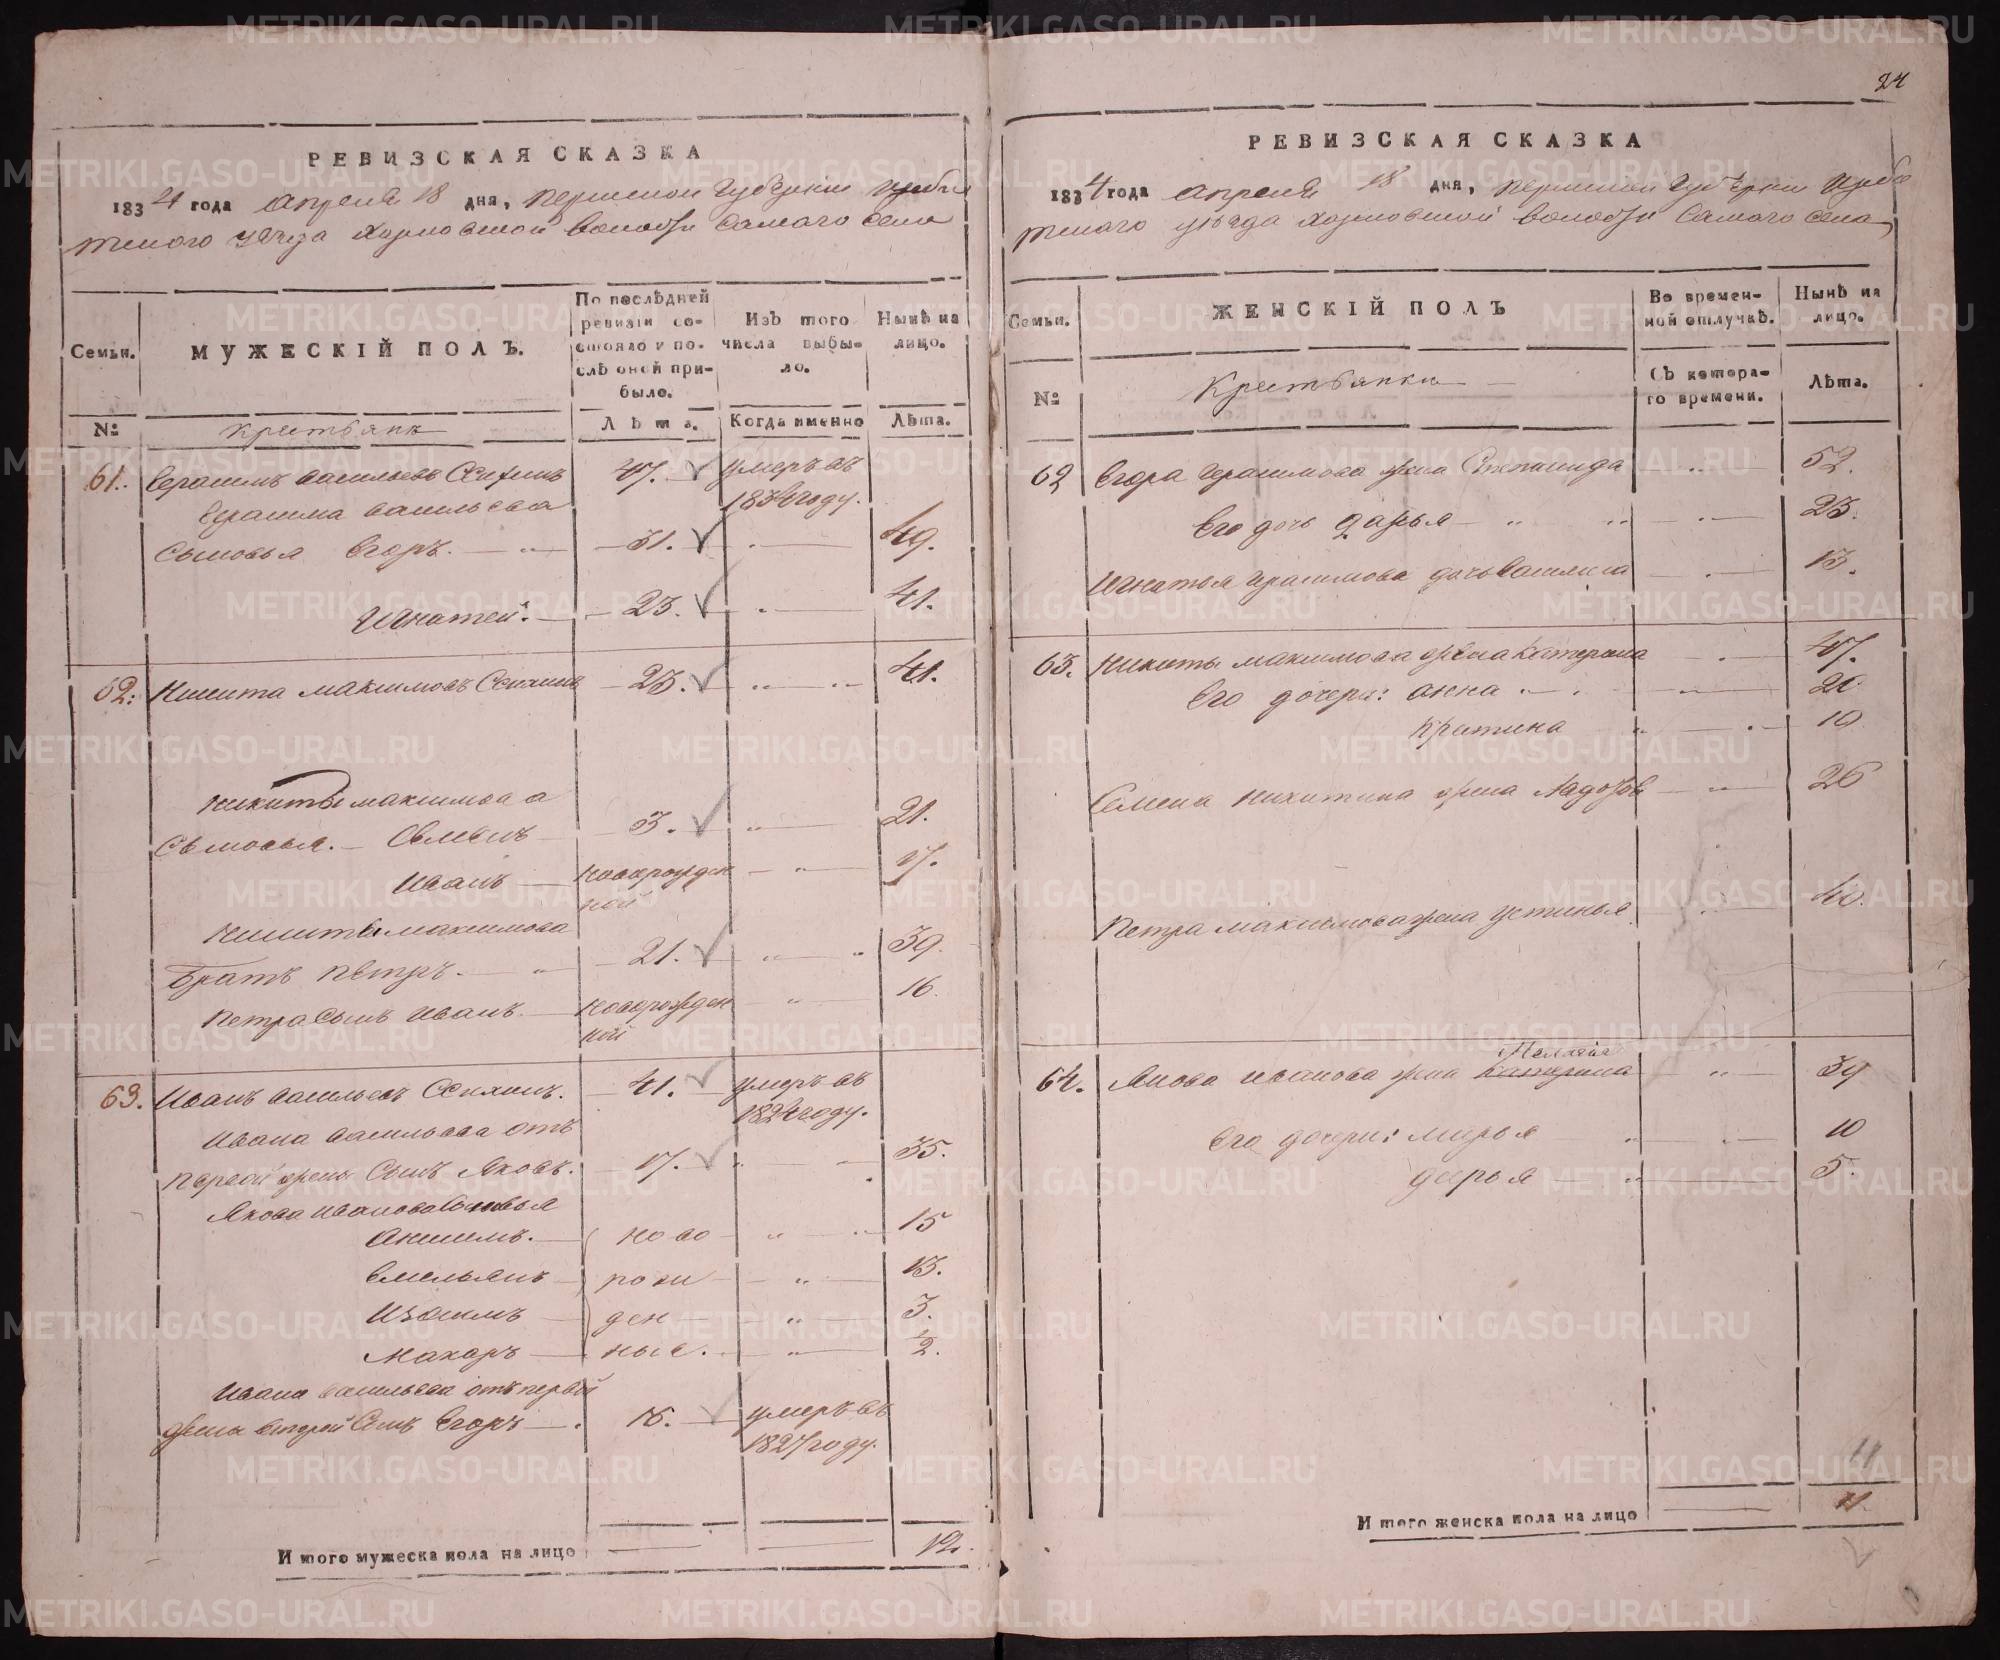 24
РЕВИЗСКАЯ СКАЗКА
1834 года апреля 18 дня, пермской губернии ирби
тского уѣзда волости самаго села
Семьи.
МУЖЕСКІЙ ПОЛЪ.
По послѣдней ревизіи состояло и послѣ оной прибыло.
Изъ того числа выбыло.
Нынѣ на лицо.
№
крестьянъ
Лѣта.
Когда именно
Лѣта.
61. Герасимъ васильевъ 47. умеръ въ
1834 году.
Герасима васильева
Сыновья Егоръ. 31. 49.
Игнатей. 23. 41.
62. Никита максимовъ 23. 41.
Никиты максимова
Сыновья. Семенъ 3. 21.
Иванъ новорожден 17.
ной
Никиты максимова
братъ петръ. 21. 39.
петра Сынъ Иванъ. новорожден 16.
ной
63. Иванъ васильевъ 41. умеръ въ
1824 году.
Ивана васильева отъ
первой жены Сынъ Яковъ. 17. 35.
Якова иванова Сыновья
Анисимъ. ново 15
Емельянъ рож 13.
Изосимъ ден 3.
Макаръ ные. 2.
Ивана васильева отъ первой
жены второй Сынъ Егоръ 16. умеръ въ
1827 году.
Итого мужеска пола на лицо 12.
РЕВИЗСКАЯ СКАЗКА
1834 года апреля 18 дня, пермской губернии ирби
тскаго уѣзда волости самаго села
Семьи.
ЖЕНСКІЙ ПОЛЪ
Во временной отлучкѣ.
Нынѣ на лицо.
№
Крестьянки
Съ котораго времени.
Лѣта.
62 Егора герасимова жена Степанида 52.
Его дочь дарья 23.
Игнатья герасимова дочь Василиса 13.
63. Никиты максимова жена Катерина 47.
Его дочери: анна 20
Кристина 10
Семена никитина жена 26
Петра максимова жена устинья 40.
Пелагия
64. Якова иванова жена катерина 39
Его дочери: марья 10
дарья 5.
11
Итого женска пола на лицо 11.
METRIKI.GASO-URAL.RU